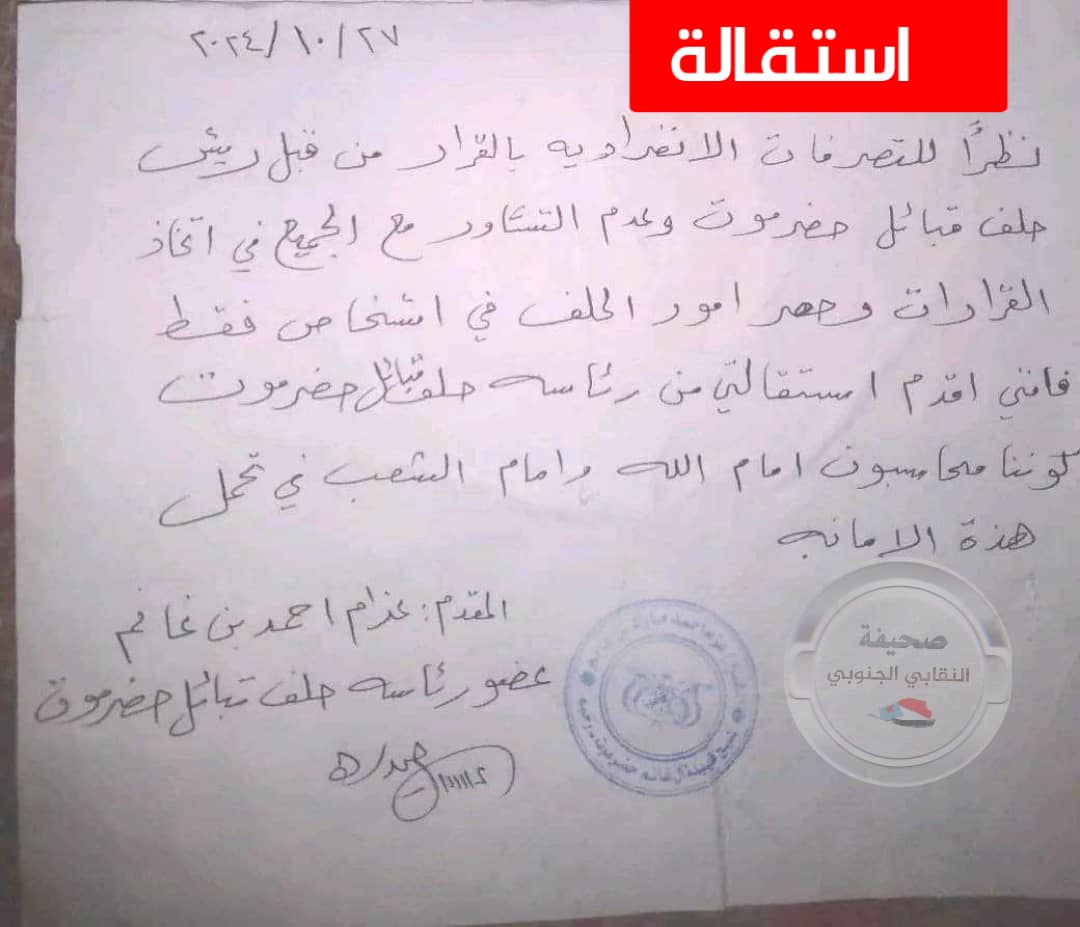 استقالة
٢٠٢٤/١٠/٢٧
نظراً للتصرفات الانفراديه بالقرار من قبل رئيس
حلف قبائل حضرموت وعدم التشاور مع الجميع في اتخاذ
القرارات وحصر امور الحلف في اشخاص فقط
فانني اقدم استقالتي من رئاسه حلف قبائل حضرموت
كوننا محاسبون امام الله وامام الشعب في تحمل
هذة الامانه
المقدم: عزام احمد بن غانم
عضو رئاسه حلف قبائل حضرموت
صحيفة
النقابي الجنوبي